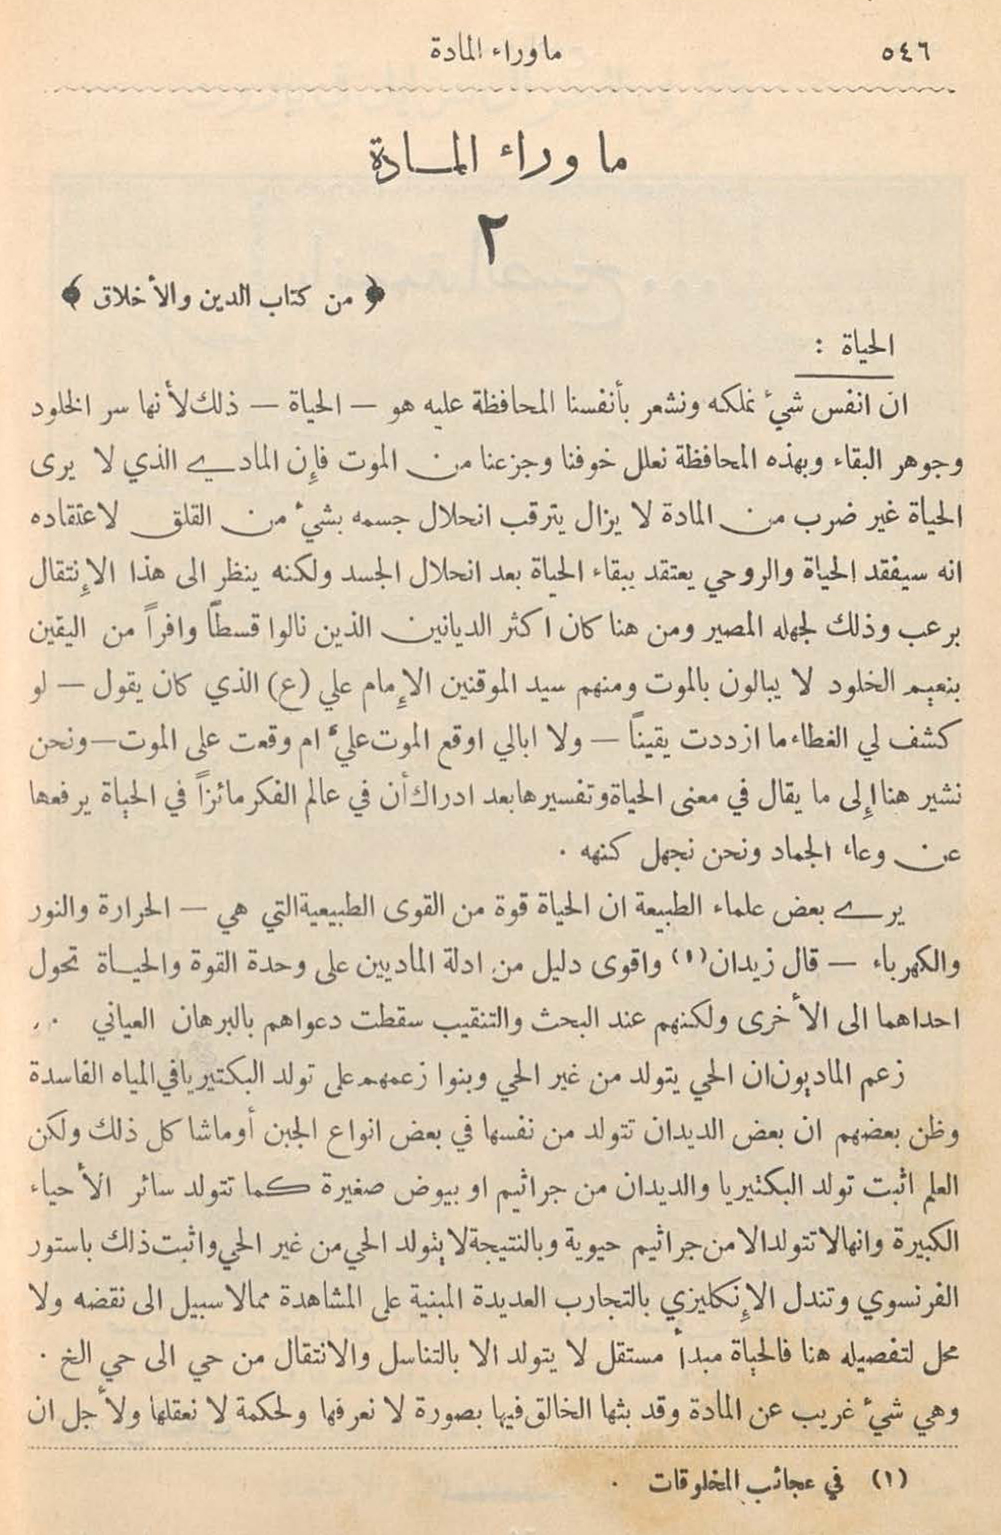 ٥٤٦
ما وراء المادة
ما وراء المادة
٢
﴿ من كتاب الدين والأخلاق ﴾
الحياة :
ان انفس شيء نملكه ونشعر بأنفسنا المحافظة عليه هو — الحياة — ذلك لأنها سر الخلود
وجوهر البقاء وبهذه المحافظة نعلل خوفنا وجزعنا من الموت فإن المادي الذي لا يرى
الحياة غير ضرب من المادة لا يزال يترقب انحلال جسمه بشيء من القلق لاعتقاده
انه سيفقد الحياة والروحي يعتقد ببقاء الحياة بعد انحلال الجسد ولكنه ينظر الى هذا الإنتقال
برعب وذلك لجهله المصير ومن هنا كان اكثر الديانين الذين نالوا قسطاً وافراً من اليقين
بنعيم الخلود لا يبالون بالموت ومنهم سيد الموقنين الإمام علي (ع) الذي كان يقول — لو
كشف لي الغطاء ما ازددت يقيناً — ولا ابالي اوقع الموت عليّ ام وقعت على الموت — ونحن
نشير هنا إلى ما يقال في معنى الحياة وتفسيرها بعد ادراك أن في عالم الفكر مائزاً في الحياة يرفعها
عن وعاء الجماد ونحن نجهل كنهه .
يرى بعض علماء الطبيعة ان الحياة قوة من القوى الطبيعية التي هي — الحرارة والنور
والكهرباء — قال زيدان (١) واقوى دليل من ادلة الماديين على وحدة القوة والحياة تحول
احداهما الى الأخرى ولكنهم عند البحث والتنقيب سقطت دعواهم بالبرهان العياني . .
زعم الماديون ان الحي يتولد من غير الحي وبنوا زعمهم على تولد البكتيريا في المياه الفاسدة
وظن بعضهم ان بعض الديدان تتولد من نفسها في بعض انواع الجبن أو ماشاكل ذلك ولكن
العلم اثبت تولد البكتيريا والديدان من جراثيم او بيوض صغيرة كما تتولد سائر الأحياء
الكبيرة وانها لا تتولد الا من جراثيم حيوية وبالنتيجة لا يتولد الحي من غير الحي واثبت ذلك باستور
الفرنسوي وتندل الإنكليزي بالتجارب العديدة المبنية على المشاهدة مما لا سبيل الى نقضه ولا
محل لتفصيله هنا فالحياة مبدأ مستقل لا يتولد الا بالتناسل والانتقال من حي الى حي الخ .
وهي شيء غريب عن المادة وقد بثها الخالق فيها بصورة لا نعرفها ولحكمة لا نعقلها ولأجل ان
(١) في عجائب المخلوقات .